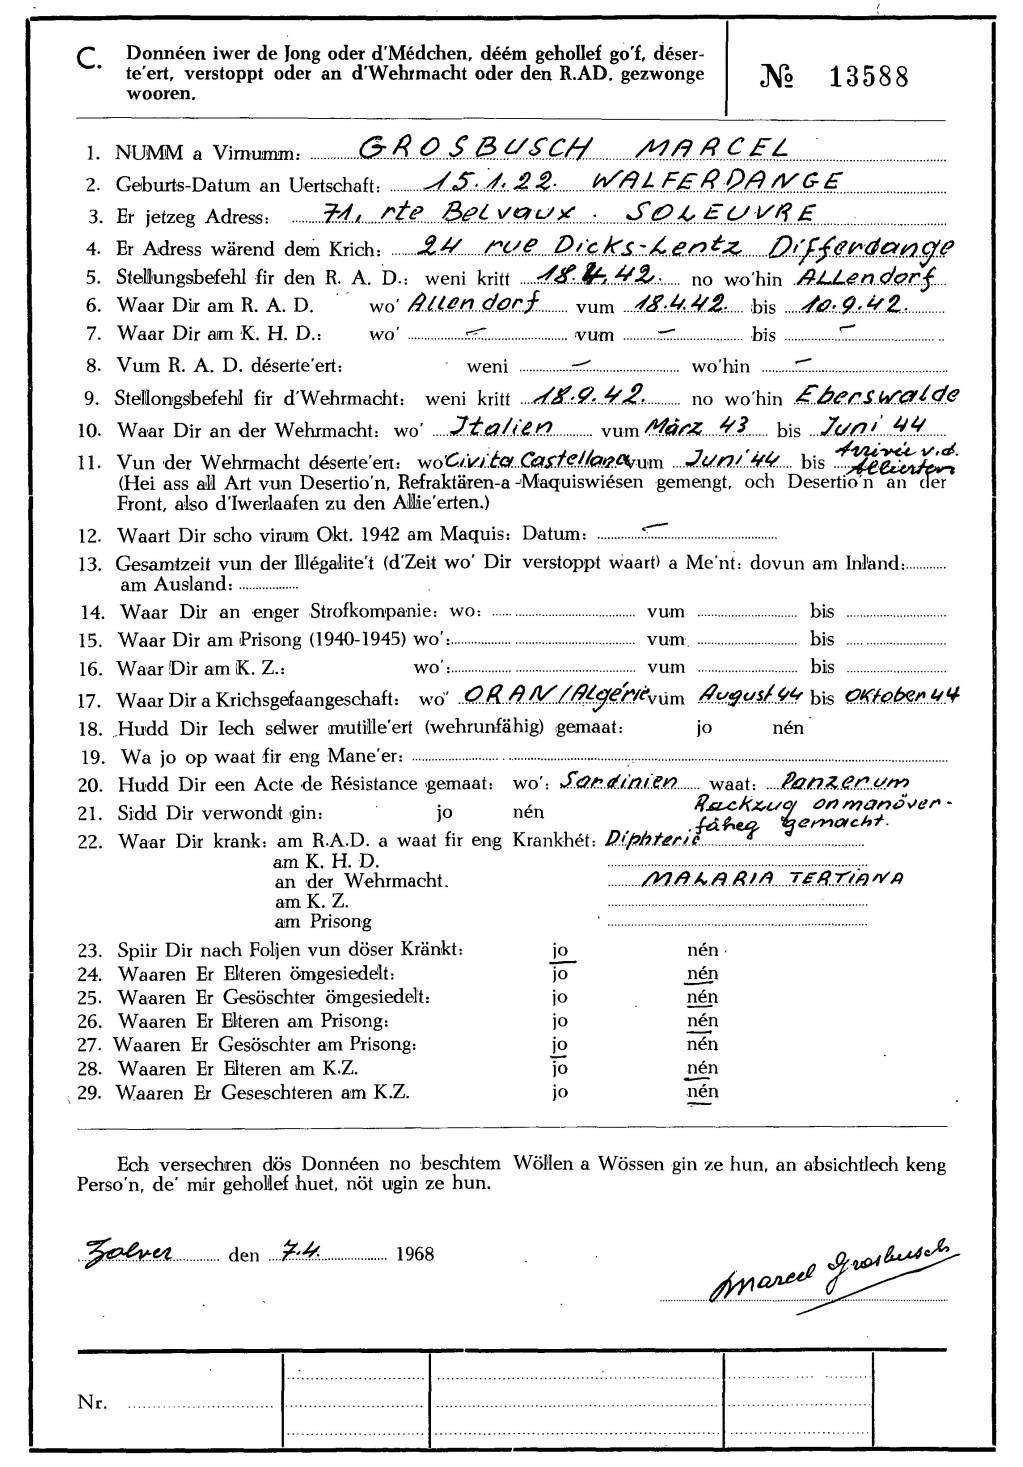 C. Donnéen iwer de Jong oder d'Médchen, déém gehollef go'f, déser-
te'ert, verstoppt oder an d'Wehrmacht oder den R.AD. gezwonge
wooren.
№ 13588
1. NUMM a Virnumm: GROSBUSCH MARCEL
2. Geburts-Datum an Uertschaft: 15.1.22. WALFERDANGE
3. Er jetzeg Adress: 71, rte Belvaux . SOLEUVRE
4. Er Adress wärend dem Krich: 24 rue Dicks-Lentz Differdange
5. Stellungsbefehl fir den R. A. D.: weni kritt 18.4.42. no wo'hin ALLendorf
6. Waar Dir am R. A. D. wo' Allendorf vum 18.4.42. bis 10.9.42.
7. Waar Dir am K. H. D.: wo' — vum — bis —
8. Vum R. A. D. déserte'ert: weni — wo'hin —
9. Stellongsbefehl fir d'Wehrmacht: weni kritt 18.9.42. no wo'hin Eberswalde
10. Waar Dir an der Wehrmacht: wo' Italien vum März 43 bis Juni 44
11. Vun der Wehrmacht déserte'ert: wo' Civita Castellana vum Juni 44 bis Arrivée v.d.
Alliierten
(Hei ass all Art vun Desertio'n, Refraktären-a-Maquiswiésen gemengt, och Desertio'n an der
Front, also d'Iwerlaafen zu den Allie'erten.)
12. Waart Dir scho virum Okt. 1942 am Maquis: Datum: —
13. Gesamtzeit vun der Illégalite't (d'Zeit wo' Dir verstoppt waart) a Me'nt: dovun am Inland:
am Ausland:
14. Waar Dir an enger Strofkompanie: wo: vum bis
15. Waar Dir am Prisong (1940-1945) wo': vum bis
16. Waar Dir am K. Z.: wo': vum bis
17. Waar Dir a Krichsgefaangeschaft: wo' ORAN/Algérie vum August 44 bis Oktober 44
18. Hudd Dir Iech selwer mutille'ert (wehrunfähig) gemaat: jo nén
19. Wa jo op waat fir eng Mane'er:
20. Hudd Dir een Acte de Résistance gemaat: wo': Sardinien waat: Panzer um
Rückzug onmanöver-
21. Sidd Dir verwondt gin: jo nén
fäheg gemacht.
22. Waar Dir krank: am R.A.D. a waat fir eng Krankhét: Diphterie
am K. H. D.
an der Wehrmacht. MALARIA TERTIANA
am K. Z.
am Prisong
23. Spiir Dir nach Foljen vun döser Kränkt: jo nén
24. Waaren Er Elteren ömgesiedelt: jo nén
25. Waaren Er Gesöschter ömgesiedelt: jo nén
26. Waaren Er Elteren am Prisong: jo nén
27. Waaren Er Gesöschter am Prisong: jo nén
28. Waaren Er Elteren am K.Z. jo nén
29. Waaren Er Geseschteren am K.Z. jo nén
Ech versechren dös Donnéen no beschtem Wöllen a Wössen gin ze hun, an absichtlech keng
Perso'n, de' mir gehollef huet, nöt ugin ze hun.
Zolver den 7.4. 1968
Marcel Grosbusch
Nr.